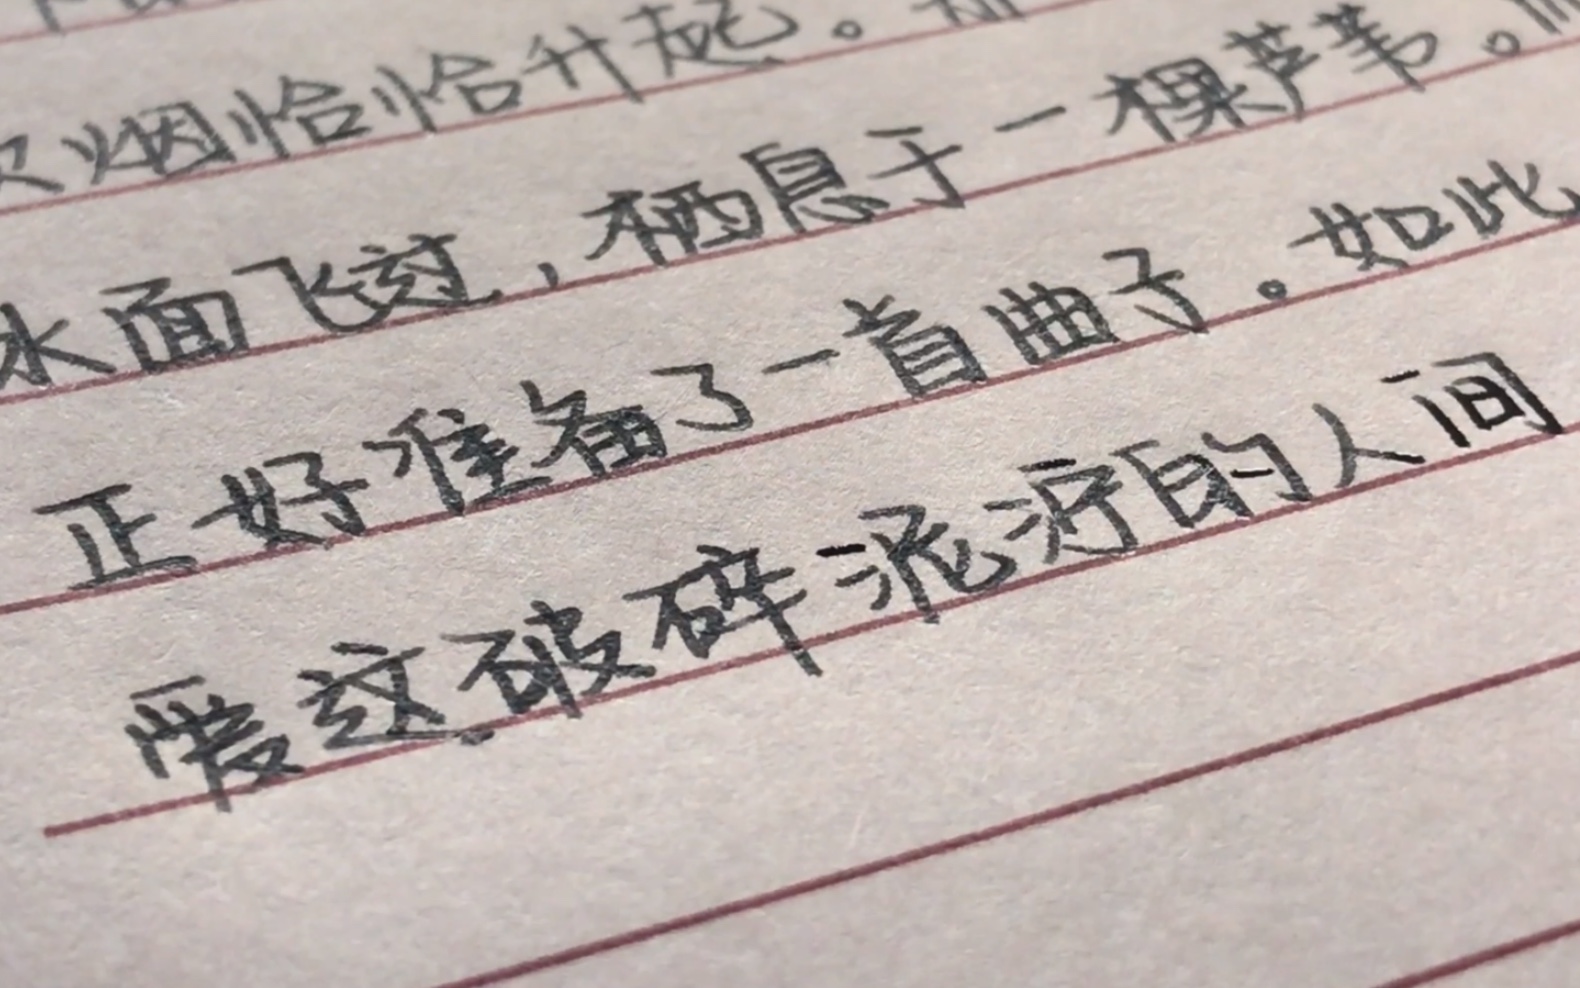 炊烟恰恰升起。
水面飞过，栖息于一棵芦苇。
正好准备了一首曲子。如此
爱这破碎泥泞的人间